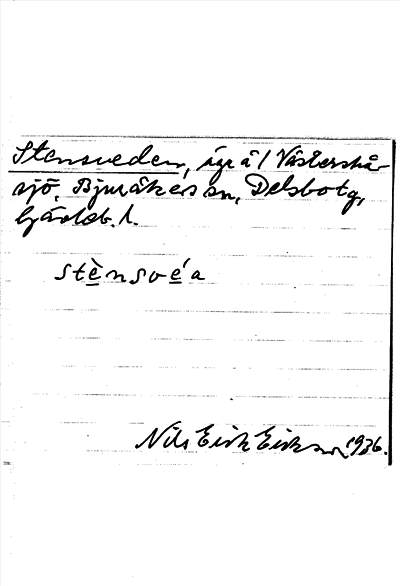 Stensveden, ägr å / Västerstrå-
sjö, Bjuråkers sn, Delsbo tg,
Gävleb. l.
stènsvéa
Nils Erik Erikson 1936.